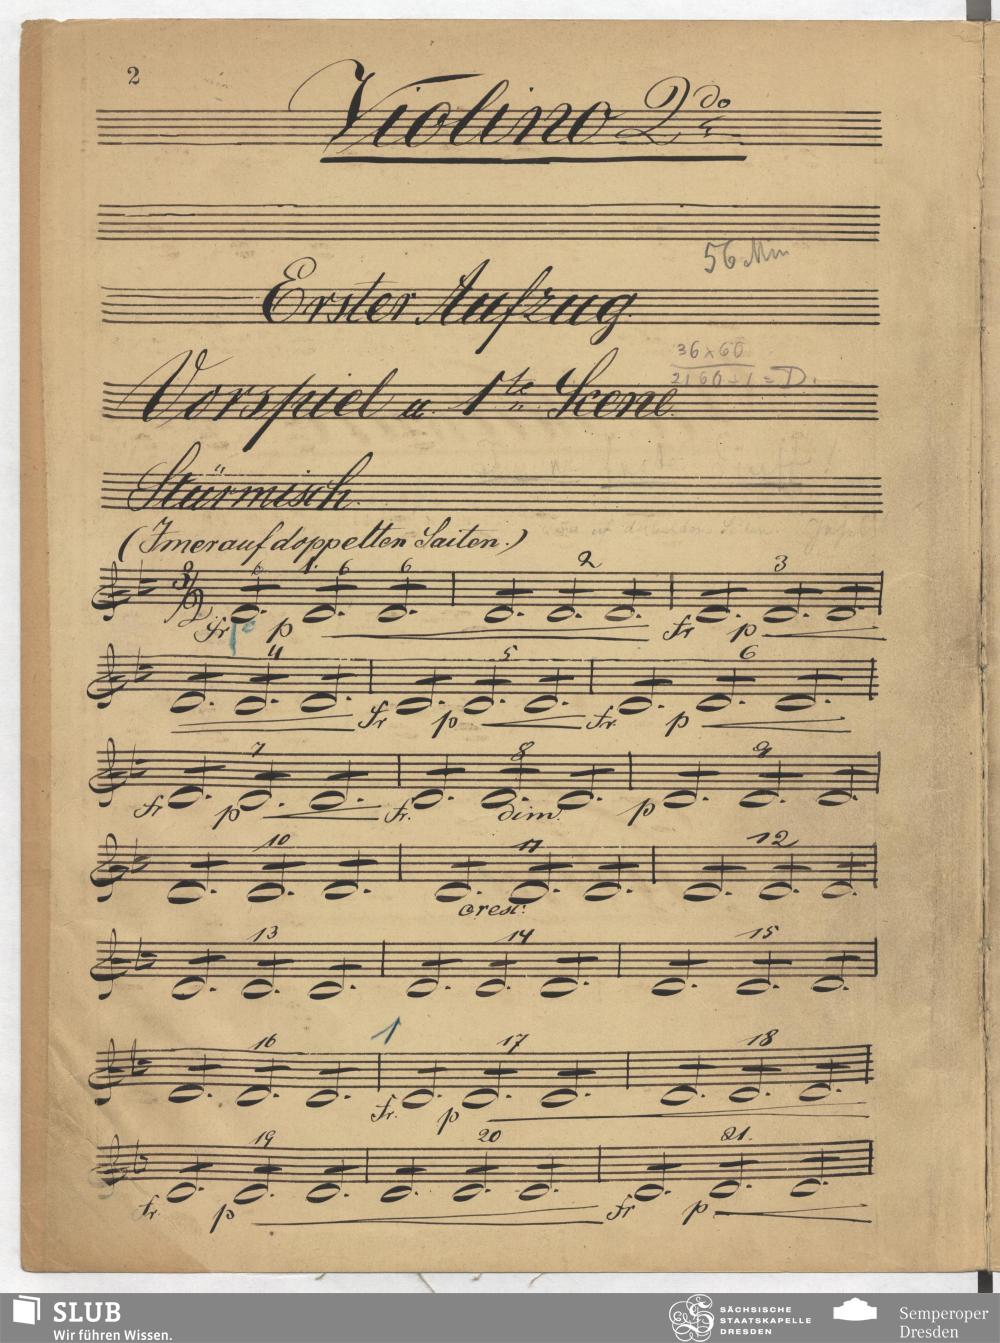 2
Violino 2do
56 Min
Erster Aufzug.
36 x 60
2160
Vorspiel u. 1te Scene.
Stürmisch.
(Imer auf doppelten Saiten.)
3/2 6 1. 6 6 2 3
fr p fr p
4 5 6
fr p fr. p
7 8 9
fr p fr. dim. p
10 11 12
cresc:
13 14 15
1
16 17 18
fr. p
19 20 21.
fr. p fr p
SLUB
Wir führen Wissen.
SÄCHSISCHE
STAATSKAPELLE
DRESDEN
Semperoper
Dresden